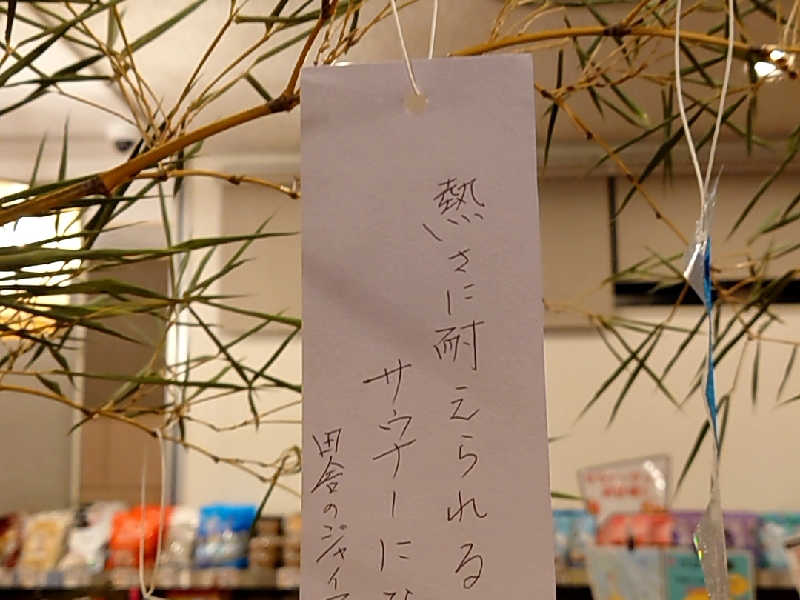 熱さに耐えられる
サウナーに
田舎のジャイア